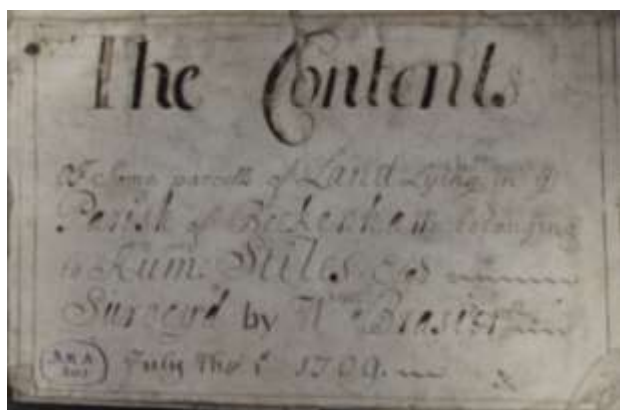 The Contents
Of Some parcells of Land Lying in yͤ
Parish of Beckenham belonging
to Hum. Stiles
Survey'd by Wᵐ Brasier
July The 1ˢᵗ 1709.